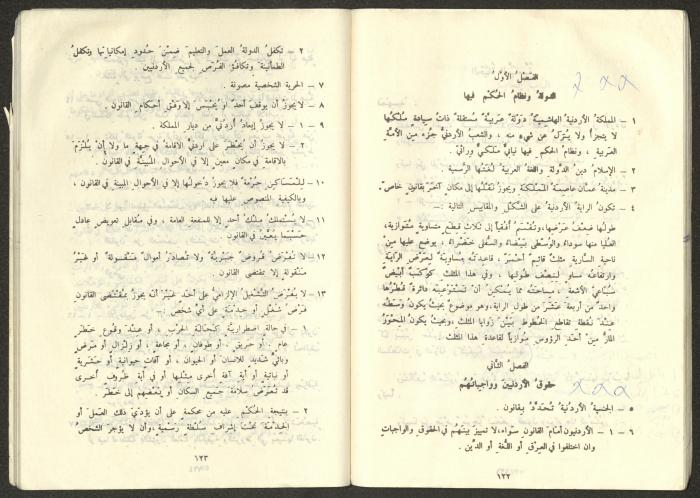 الفصل الأول
الدولة ونظام الحكم فيها
١ – المملكة الأردنية الهاشمية دولة عربية مستقلة ذات سيادة ملكها
لا يتجزأ ولا ينزل عن شيء منه ، والشعب الأردني جزء من الأمة
العربية ، ونظام الحكم فيها نيابي ملكي وراثي .
٢ – الإسلام دين الدولة واللغة العربية لغتها الرسمية .
٣ – مدينة عمان عاصمة المملكة ويجوز نقلها إلى مكان آخر بقانون خاص
٤ – تكون الراية الأردنية على الشكل والمقاييس التالية :–
طولها ضعف عرضها، وتقسم أفقياً إلى ثلاث قطع متساوية متوازية،
العليا منها سوداء والوسطى بيضاء والسفلى خضراء ، يوضع عليها من
ناحية السارية مثلث قائم أحمر ، قاعدته مساوية لعرض الراية
وارتفاعه مساو لنصف طولها ، وفي هذا المثلث كوكب أبيض
سباعي الأشعة ، مساحته مما يمكن أن تستوعبه دائرة قطرها
واحد من أربعة عشر من طول الراية، وهو موضوع بحيث يكون وسطه
عند نقطة تقاطع الخطوط بين زوايا المثلث وبحيث يكون المحور
المار من أحد الرؤوس متوازياً لقاعدة هذا المثلث
الفصل الثاني
حقوق الأردنيين وواجباتهم
٥ – الجنسية الأردنية تحدد بقانون .
٦ – ١ – الأردنيون أمام القانون سواء، لا تمييز بينهم في الحقوق والواجبات
وان اختلفوا في العرق أو اللغة أو الدين .
١٢٢
٢ – تكفل الدولة العمل والتعليم ضمن حدود إمكانياتها وتكفل
الطمأنينة وتكافؤ الفرص لجميع الأردنيين
٧ – الحرية الشخصية مصونة .
٨ – لا يجوز أن يوقف أحد أو يحبس إلا وفق أحكام القانون .
٩ – ١ – لا يجوز إبعاد أردني من ديار المملكة .
٢ – لا يجوز أن يحظر على أردني الاقامة في جهة ما ولا أن يلزم
بالاقامة في مكان معين إلا في الأحوال المبينة في القانون .
١٠ – للمساكن حرمة فلا يجوز دخولها إلا في الأحوال المبينة في القانون ،
وبالكيفية المنصوص عليها فيه
١١ – لا يستملك ملك أحد إلا للمنفعة العامة ، وفي مقابل تعويض عادل
حسبما يعين في القانون
١٢ – لا تفرض قروض جبرية ولا تصادر أموال منقولة أو غير
منقولة إلا بمقتضى القانون .
١٣ – لا يفرض التشغيل الإلزامي على أحد غير أنه يجوز بمقتضى القانون
فرض شغل أو خدمة على أي شخص :–
١ – في حالة اضطرارية كحالة الحرب ، أو عند وقوع خطر
عام ، أو حريق ، أو طوفان ، أو مجاعة ، أو زلزال أو مرض
وبائي شديد للانسان أو الحيوان ، أو آفات حيوانية أو حشرية
أو نباتية أو أية آفة أخرى مثلها أو في أية ظروف أخرى
قد تعرض سلامة جميع السكان أو بعضهم إلى خطر .
٢ – بنتيجة الحكم عليه من محكمة على أن يؤدي ذلك العمل أو
الخدمة تحت إشراف سلطة رسمية، وأن لا يؤجر الشخص
١٢٣